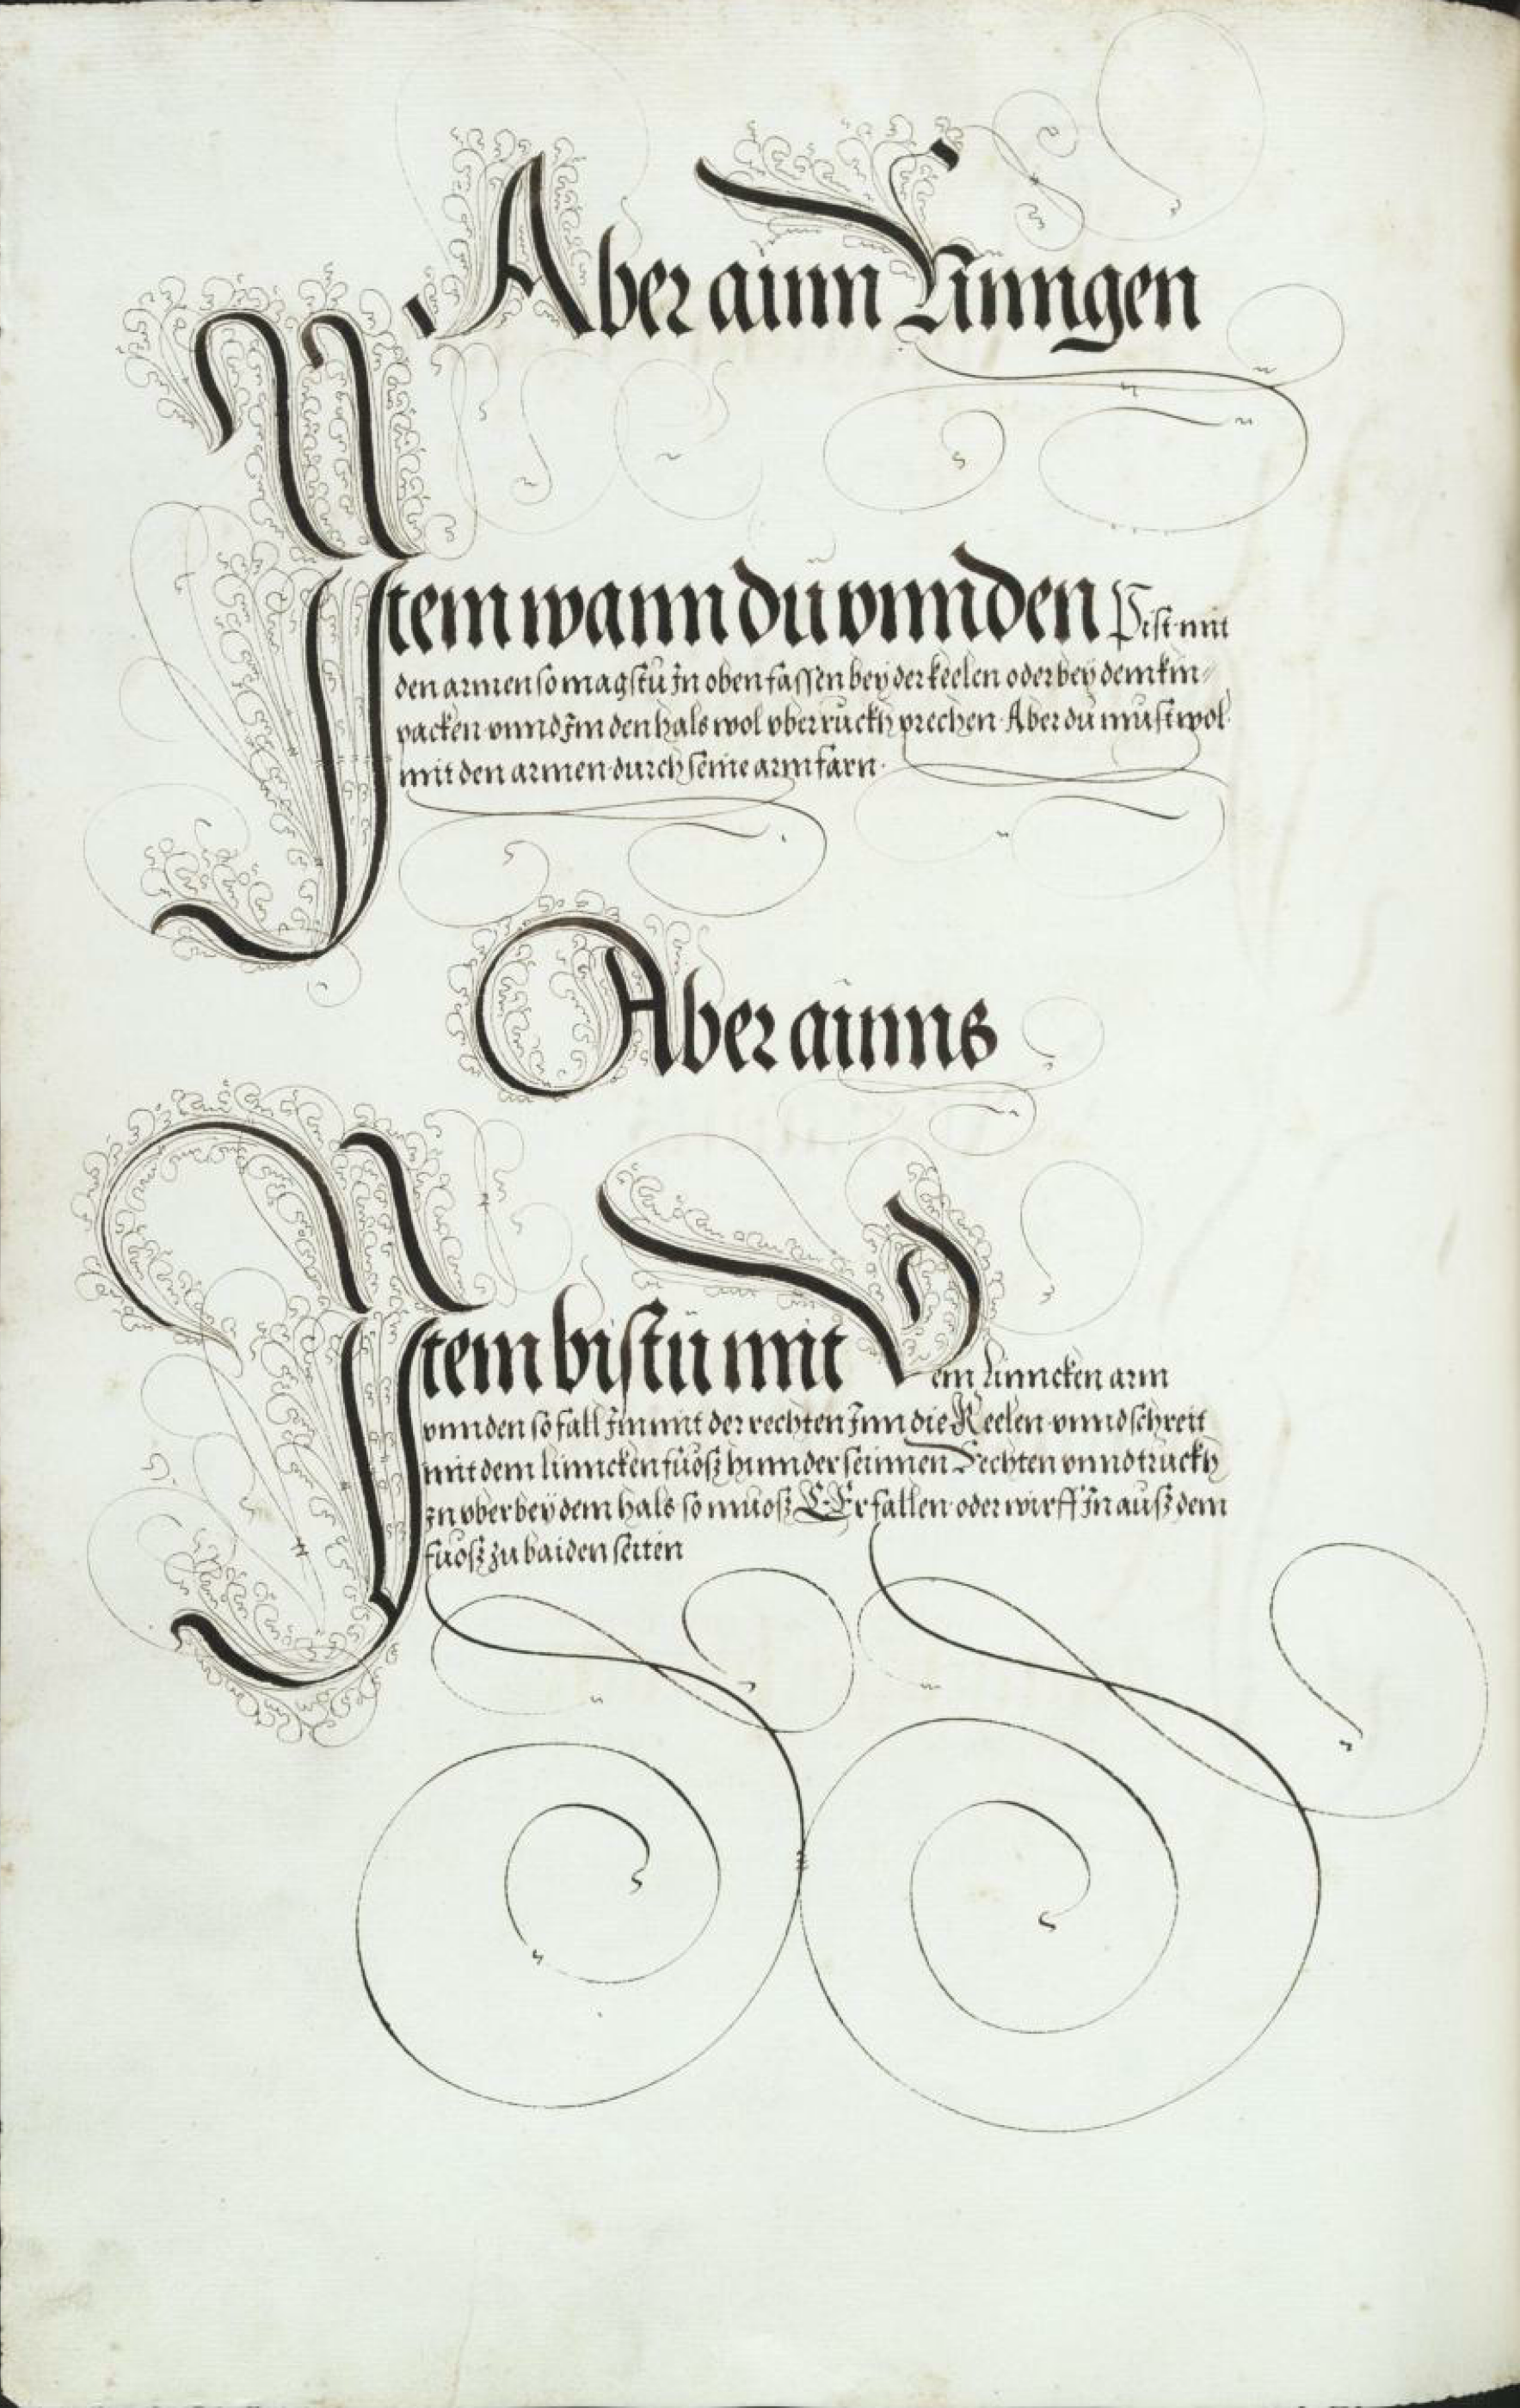 Aber ainn Ringen
Item wann du vnnden Pist mit
den armen so magstu In oben fassen bey der keelen oder bey dem kin⸗
packen vnnd Im den hals wol vber ruckh prechen. Aber du must wol
mit den armen durch seine arm farn.
Aber ainns
Item bistu mit Dem Linncken arm
vnnden so fall Im mit der rechten Inn die Keelen vnnd schreit
mit dem linncken fuosz hinnder seinnen Rechten vnnd truckh
In vber bey dem hals so muosz E.Er fallen oder wirff In ausz dem
fuosz zu baiden seiten